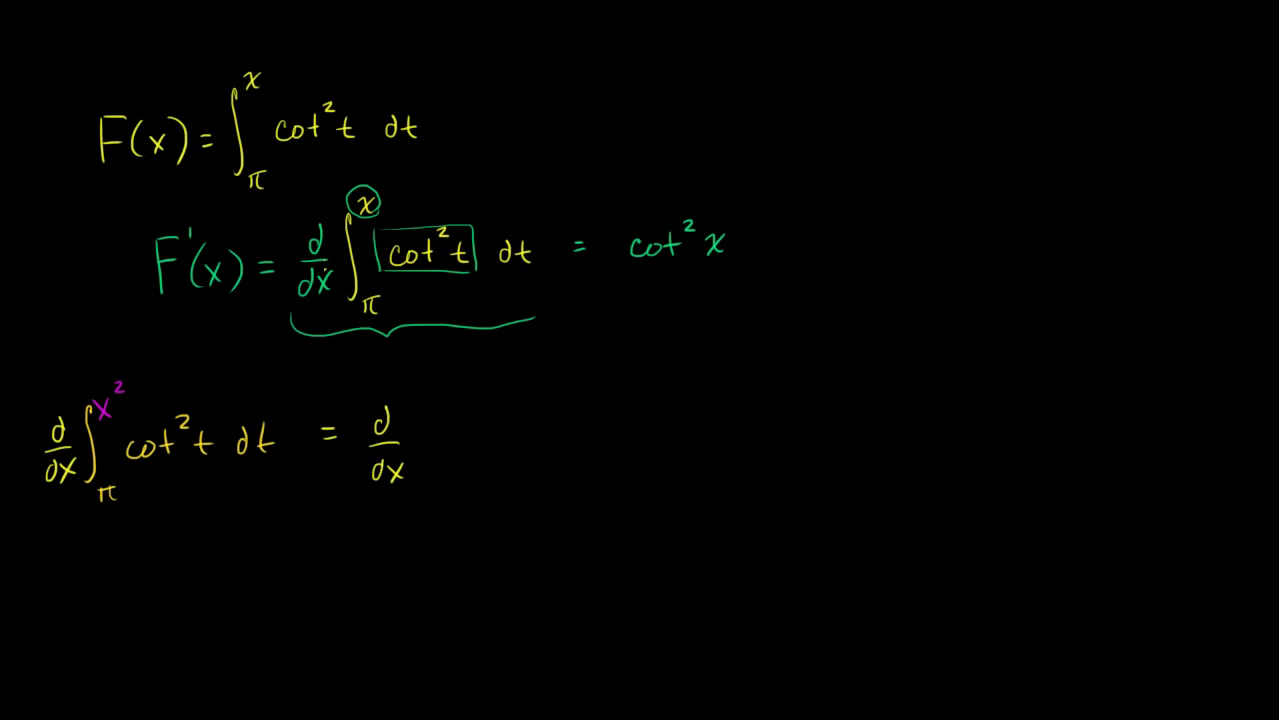 F(x) = ∫_π^x cot² t dt
F'(x) = d/dx ∫_π^x cot² t dt = cot² x
d/dx ∫_π^x² cot² t dt = d/dx